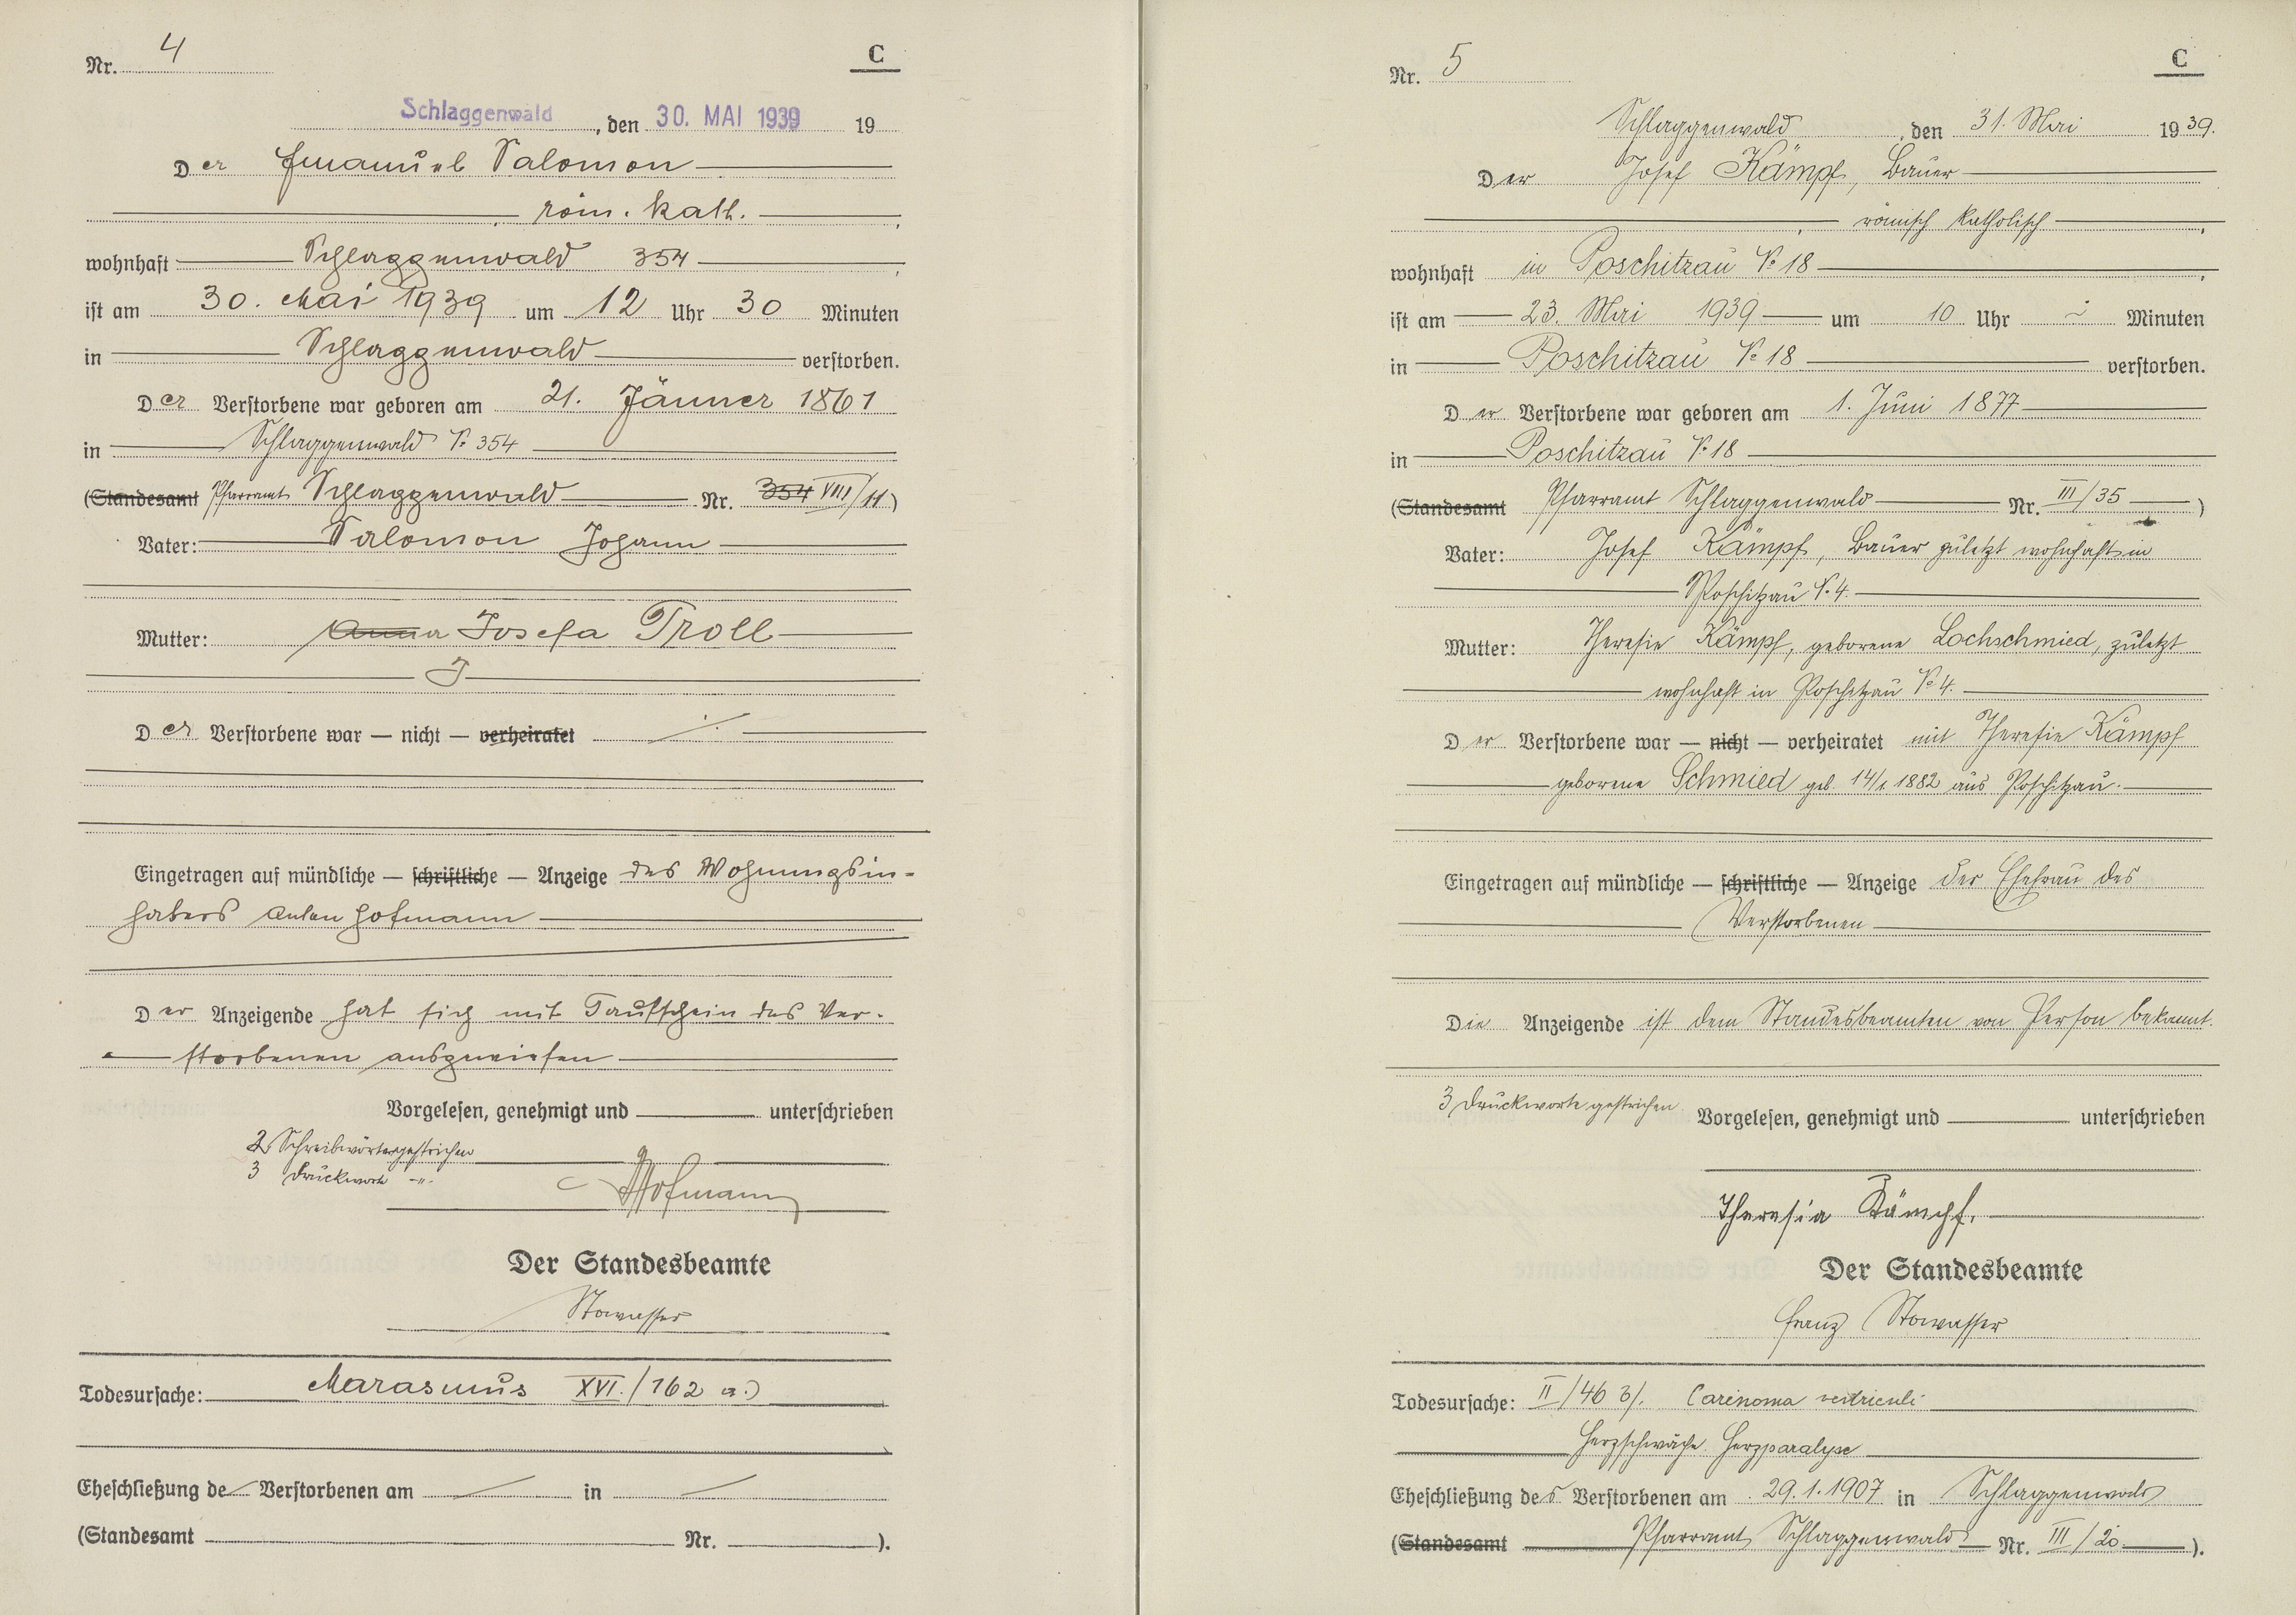 Nr. 4
C
Schlaggenwald, den 30. MAI 1939 19
Der Emanuel Salomon
röm. kath.
wohnhaft Schlaggenwald 354
ist am 30. Mai 1939 um 12 Uhr 30 Minuten
in Schlaggenwald verstorben.
Der Verstorbene war geboren am 21. Jänner 1861
in Schlaggenwald No 354
(Standesamt Pfarramt Schlaggenwald Nr. 354 VIII/11)
Vater: Salomon Johann
Mutter: Anna Josefa Troll
J
Der Verstorbene war — nicht — verheiratet
Eingetragen auf mündliche — schriftliche — Anzeige des Wohnungsin-
habers Anton Hofmann
Der Anzeigende hat sich mit Taufschein des Ver-
storbenen ausgewiesen
Vorgelesen, genehmigt und unterschrieben
2 Schreibwörter gestrichen
3 Druckworte -"-
Hofmann
Der Standesbeamte
Stowasser
Todesursache: Marasmus XVI./162 a.)
Eheschließung de Verstorbenen am in
(Standesamt Nr. ).
Nr. 5
C
Schlaggenwald, den 31. Mai 1939.
Der Josef Kämpf, Bauer
römisch katholisch
wohnhaft in Poschitzau No 18
ist am 23. Mai 1939 um 10 Uhr — Minuten
in Poschitzau No 18 verstorben.
Der Verstorbene war geboren am 1. Juni 1877
in Poschitzau No 18
(Standesamt Pfarramt Schlaggenwald Nr. III/35 )
Vater: Josef Kämpf, Bauer zuletzt wohnhaft in
Poschitzau No 4.
Mutter: Theresie Kämpf, geborene Lochschmied, zuletzt
wohnhaft in Poschitzau No 4.
Der Verstorbene war — nicht — verheiratet mit Theresie Kämpf
geborene Schmied geb. 14/1 1882 aus Poschitzau.
Eingetragen auf mündliche — schriftliche — Anzeige der Ehefrau des
Verstorbenen
Die Anzeigende ist dem Standesbeamten von Person bekannt.
3 Druckworte gestrichen Vorgelesen, genehmigt und unterschrieben
Theresia Kämpf.
Der Standesbeamte
Franz Stowasser
Todesursache: II/46 b/. Carinoma ventriculi
Herzschwäche Herzparalyse
Eheschließung des Verstorbenen am 29.1.1907 in Schlaggenwald
(Standesamt Pfarramt Schlaggenwald Nr. III/20 ).